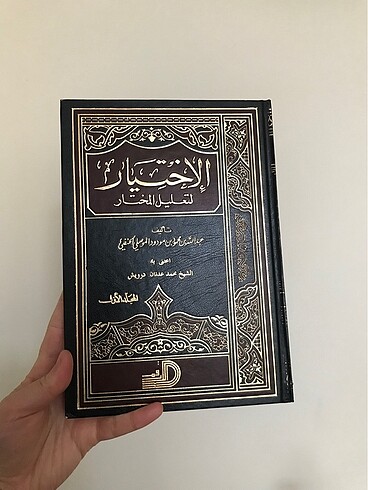 الاختيار
لتعليل المختار
تأليف
عبد الله بن محمود بن مودود الموصلي الحنفي
اعتنى به
الشيخ محمد عدنان درويش
المجلد الأول